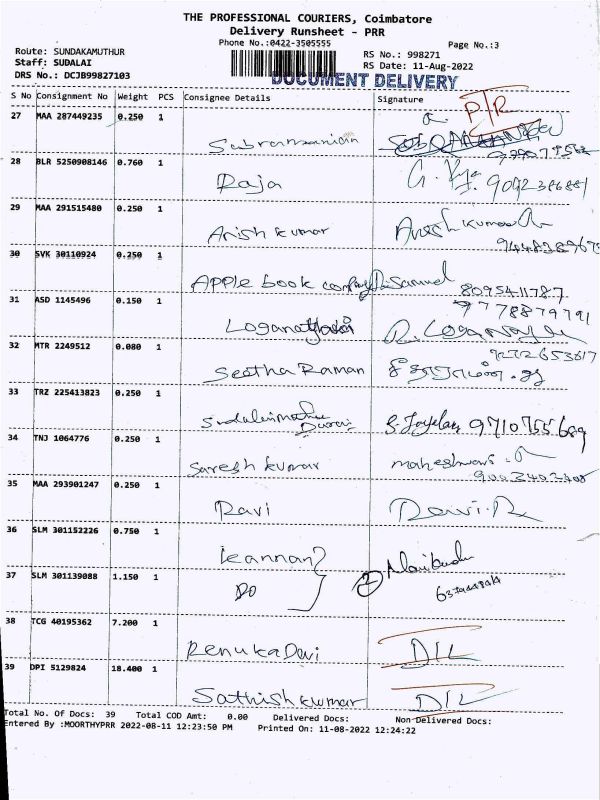 THE PROFESSIONAL COURIERS, Coimbatore
Delivery Runsheet - PRR
Phone No.:0422-3505555
Page No.:3
Route: SUNDAKAMUTHUR
RS No.: 998271
Staff: SUDALAI
RS Date: 11-Aug-2022
DRS No.: DCJB99827103
DOCUMENT DELIVERY
S No Consignment No Weight PCS Consignee Details Signature
PTR
27 MAA 287449235 0.250 1
Subramanian
28 BLR 5250908146 0.760 1
Raja 9092386881
29 MAA 291515480 0.250 1
Arish kumar
30 SVK 30110924 0.250 1
APPLe book company Samuel
8095411787
31 ASD 1145496 0.150 1
9778879791
32 MTR 2249512 0.080 1
9222653617
Seetha Raman
33 TRZ 225413823 0.250 1
9710755689
34 TNJ 1064776 0.250 1
Suresh kumar maheshwari
35 MAA 293901247 0.250 1
Ravi
36 SLM 301152226 0.750 1
kannan
37 SLM 301139088 1.150 1
DO 2
38 TCG 40195362 7.200 1
Renuka Devi D/L
39 DPI 5129824 18.400 1
Sathish kumar D/L
Total No. Of Docs: 39 Total COD Amt: 0.00 Delivered Docs: Non Delivered Docs:
Entered By :MOORTHYPRR 2022-08-11 12:23:50 PM Printed On: 11-08-2022 12:24:22